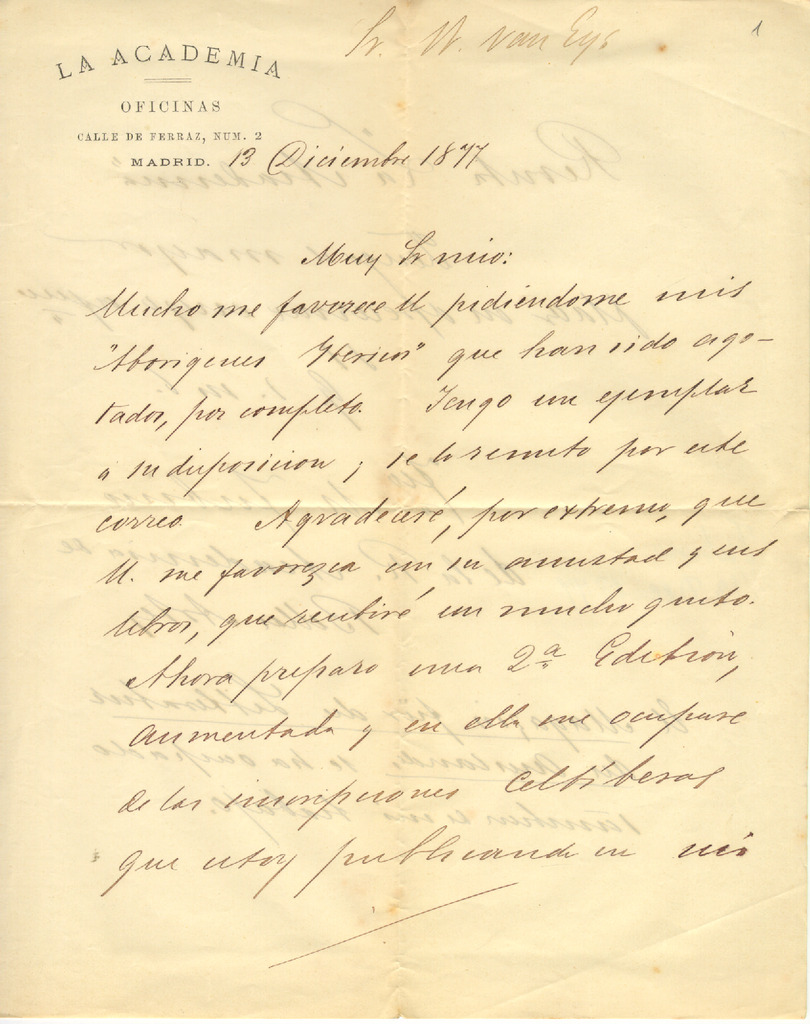 Sr. W. van Eys
1
LA ACADEMIA
OFICINAS
CALLE DE FERRAZ, NUM. 2
MADRID. 13 Diciembre 1877
Muy Sr mio:
Mucho me favorece U pidiendome mis
"Aborigenes Ibericos" que han sido ago-
tados, por completo. Tengo un ejemplar
a su disposicion; se lo remito por este
correo. Agradeceré, por extremo, que
U. me favorezca con su amistad y sus
libros, que recibiré con mucho gusto.
Ahora preparo una 2ª Edición,
aumentada y en ella me ocupare
de las inscripciones Celtiberas
que estoy publicando en mi